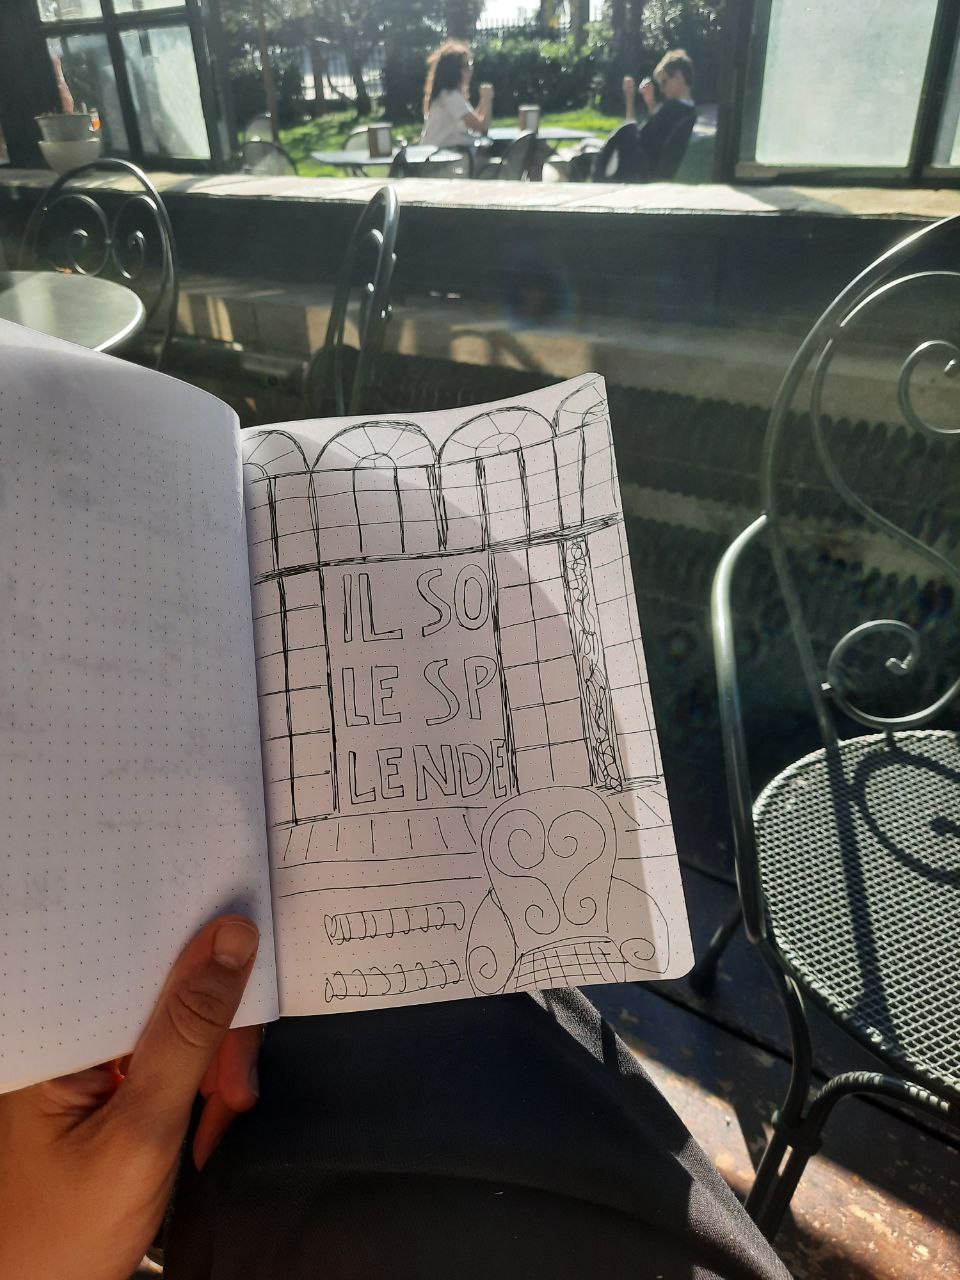 IL SO
LE SP
LENDE